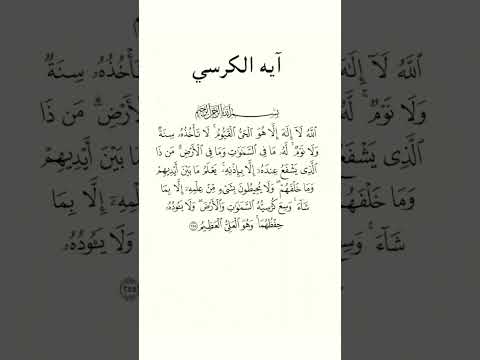 آيه الكرسي
بِسْمِ ٱللَّهِ ٱلرَّحْمَٰنِ ٱلرَّحِيمِ
ٱللَّهُ لَآ إِلَٰهَ إِلَّا هُوَ ٱلْحَىُّ ٱلْقَيُّومُ ۚ لَا تَأْخُذُهُۥ سِنَةٌ
وَلَا نَوْمٌ ۚ لَّهُۥ مَا فِى ٱلسَّمَٰوَٰتِ وَمَا فِى ٱلْأَرْضِ ۗ مَن ذَا
ٱلَّذِى يَشْفَعُ عِندَهُۥٓ إِلَّا بِإِذْنِهِۦ ۚ يَعْلَمُ مَا بَيْنَ أَيْدِيهِمْ
وَمَا خَلْفَهُمْ ۖ وَلَا يُحِيطُونَ بِشَىْءٍ مِّنْ عِلْمِهِۦٓ إِلَّا بِمَا
شَآءَ ۚ وَسِعَ كُرْسِيُّهُ ٱلسَّمَٰوَٰتِ وَٱلْأَرْضَ ۖ وَلَا يَـُٔودُهُۥ
حِفْظُهُمَا ۚ وَهُوَ ٱلْعَلِىُّ ٱلْعَظِيمُ ٢٥٥